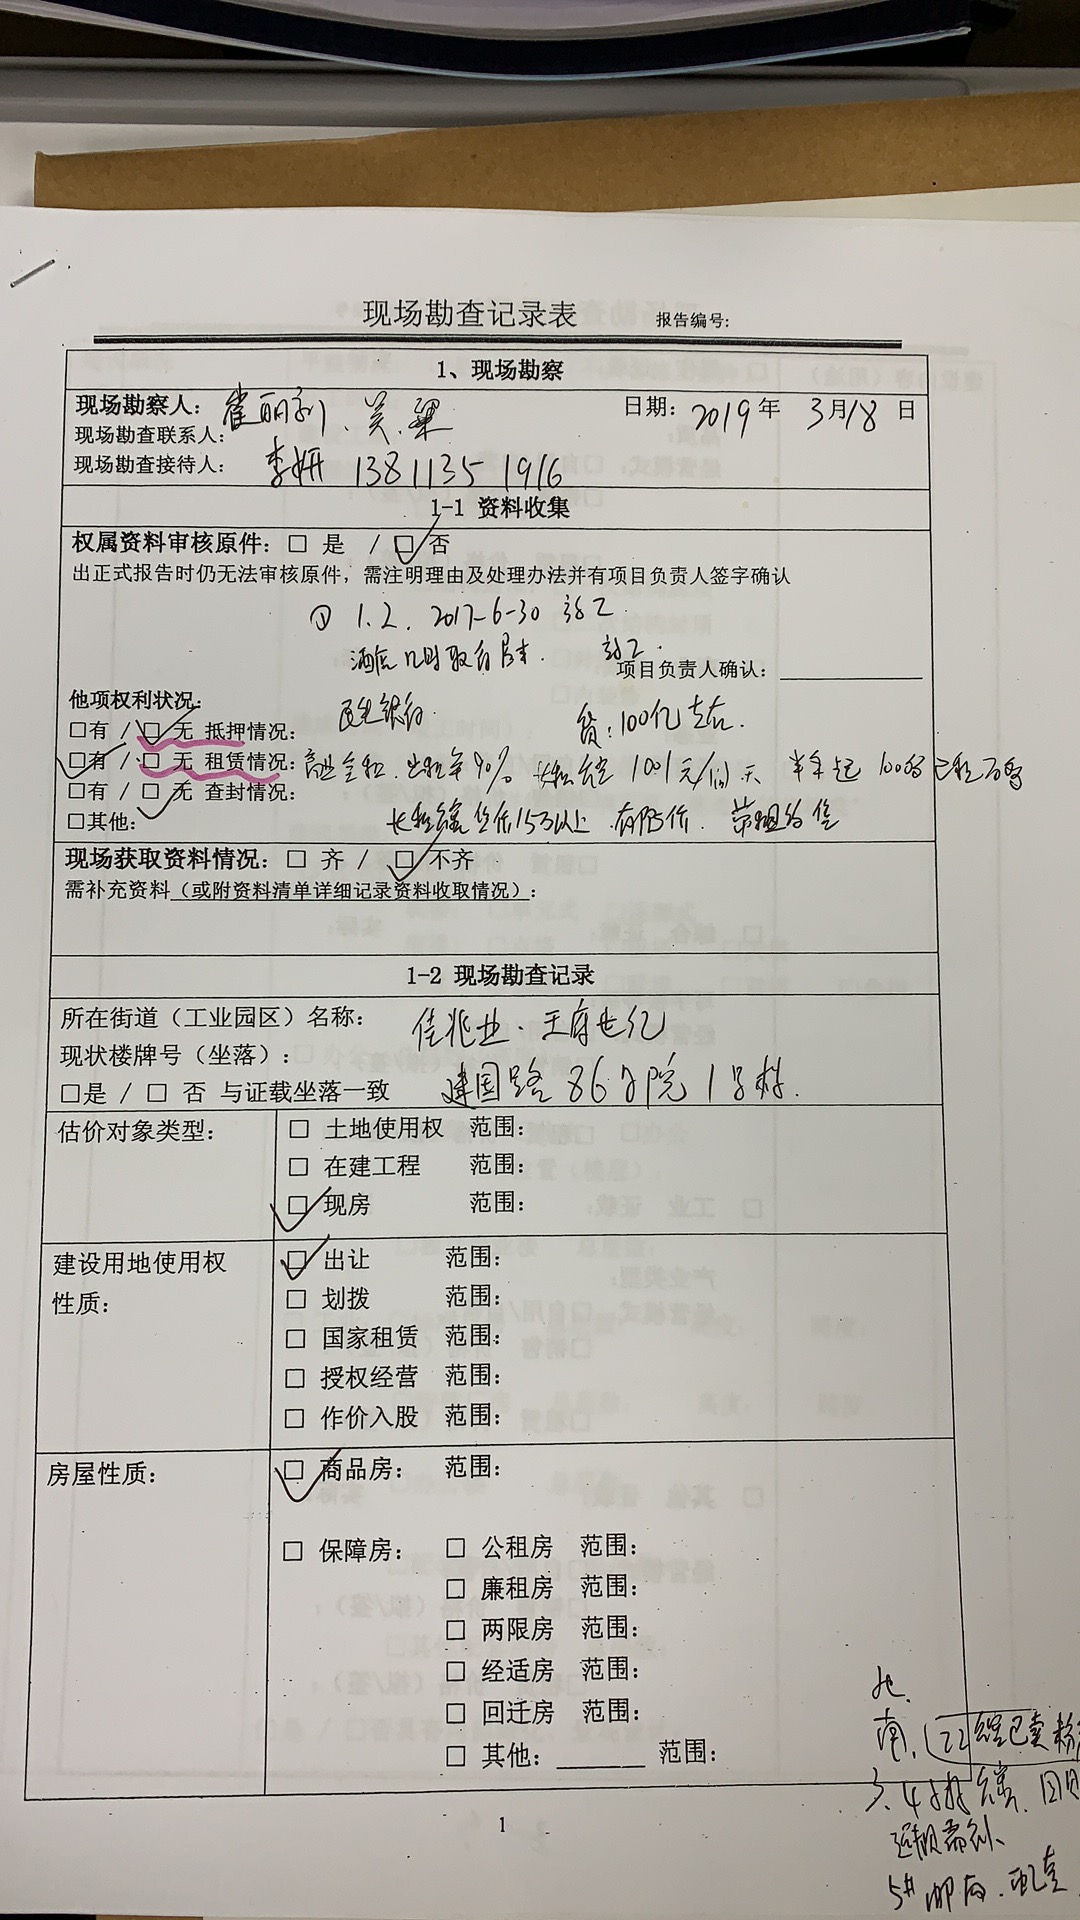 现场勘查记录表 报告编号:
1、现场勘察
现场勘察人: 崔丽 、关、梁 日期: 2019年 3月18日
现场勘查联系人:
现场勘查接待人: 李妍 13811351916
1-1 资料收集
权属资料审核原件: □ 是 / □ 否
出正式报告时仍无法审核原件, 需注明理由及处理办法并有项目负责人签字确认
① 1.2. 2017-6-30
酒店
项目负责人确认:
他项权利状况:
□有 / □ 无 抵押情况: 民生银行 贷:100亿左右.
□有 / □ 无 租赁情况: 商业全租. 出租率90% 1001元/间天 半年起
□有 / □ 无 查封情况:
□其他: 15万以上 有限价.
现场获取资料情况: □ 齐 / □ 不齐
需补充资料(或附资料清单详细记录资料收取情况):
1-2 现场勘查记录
所在街道(工业园区)名称: 佳兆业·王府世纪
现状楼牌号(坐落):
□是 / □ 否 与证载坐落一致 建国路86号院1号楼.
估价对象类型: □ 土地使用权 范围:
□ 在建工程 范围:
□ 现房 范围:
建设用地使用权性质: □ 出让 范围:
□ 划拨 范围:
□ 国家租赁 范围:
□ 授权经营 范围:
□ 作价入股 范围:
房屋性质: □ 商品房: 范围:
□ 保障房: □ 公租房 范围:
□ 廉租房 范围:
□ 两限房 范围:
□ 经适房 范围:
□ 回迁房 范围:
□ 其他: 范围:
北.
南.
3、4
5#
1